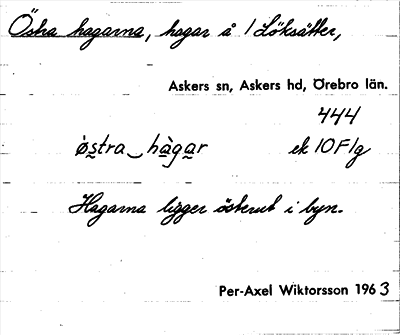 Östra hagarna, hagar å 1 Löksätter,
Askers sn, Askers hd, Örebro län.
444
östra‿hàgar ek 10F1g
Hagarna ligger österut i byn.
Per-Axel Wiktorsson 1963